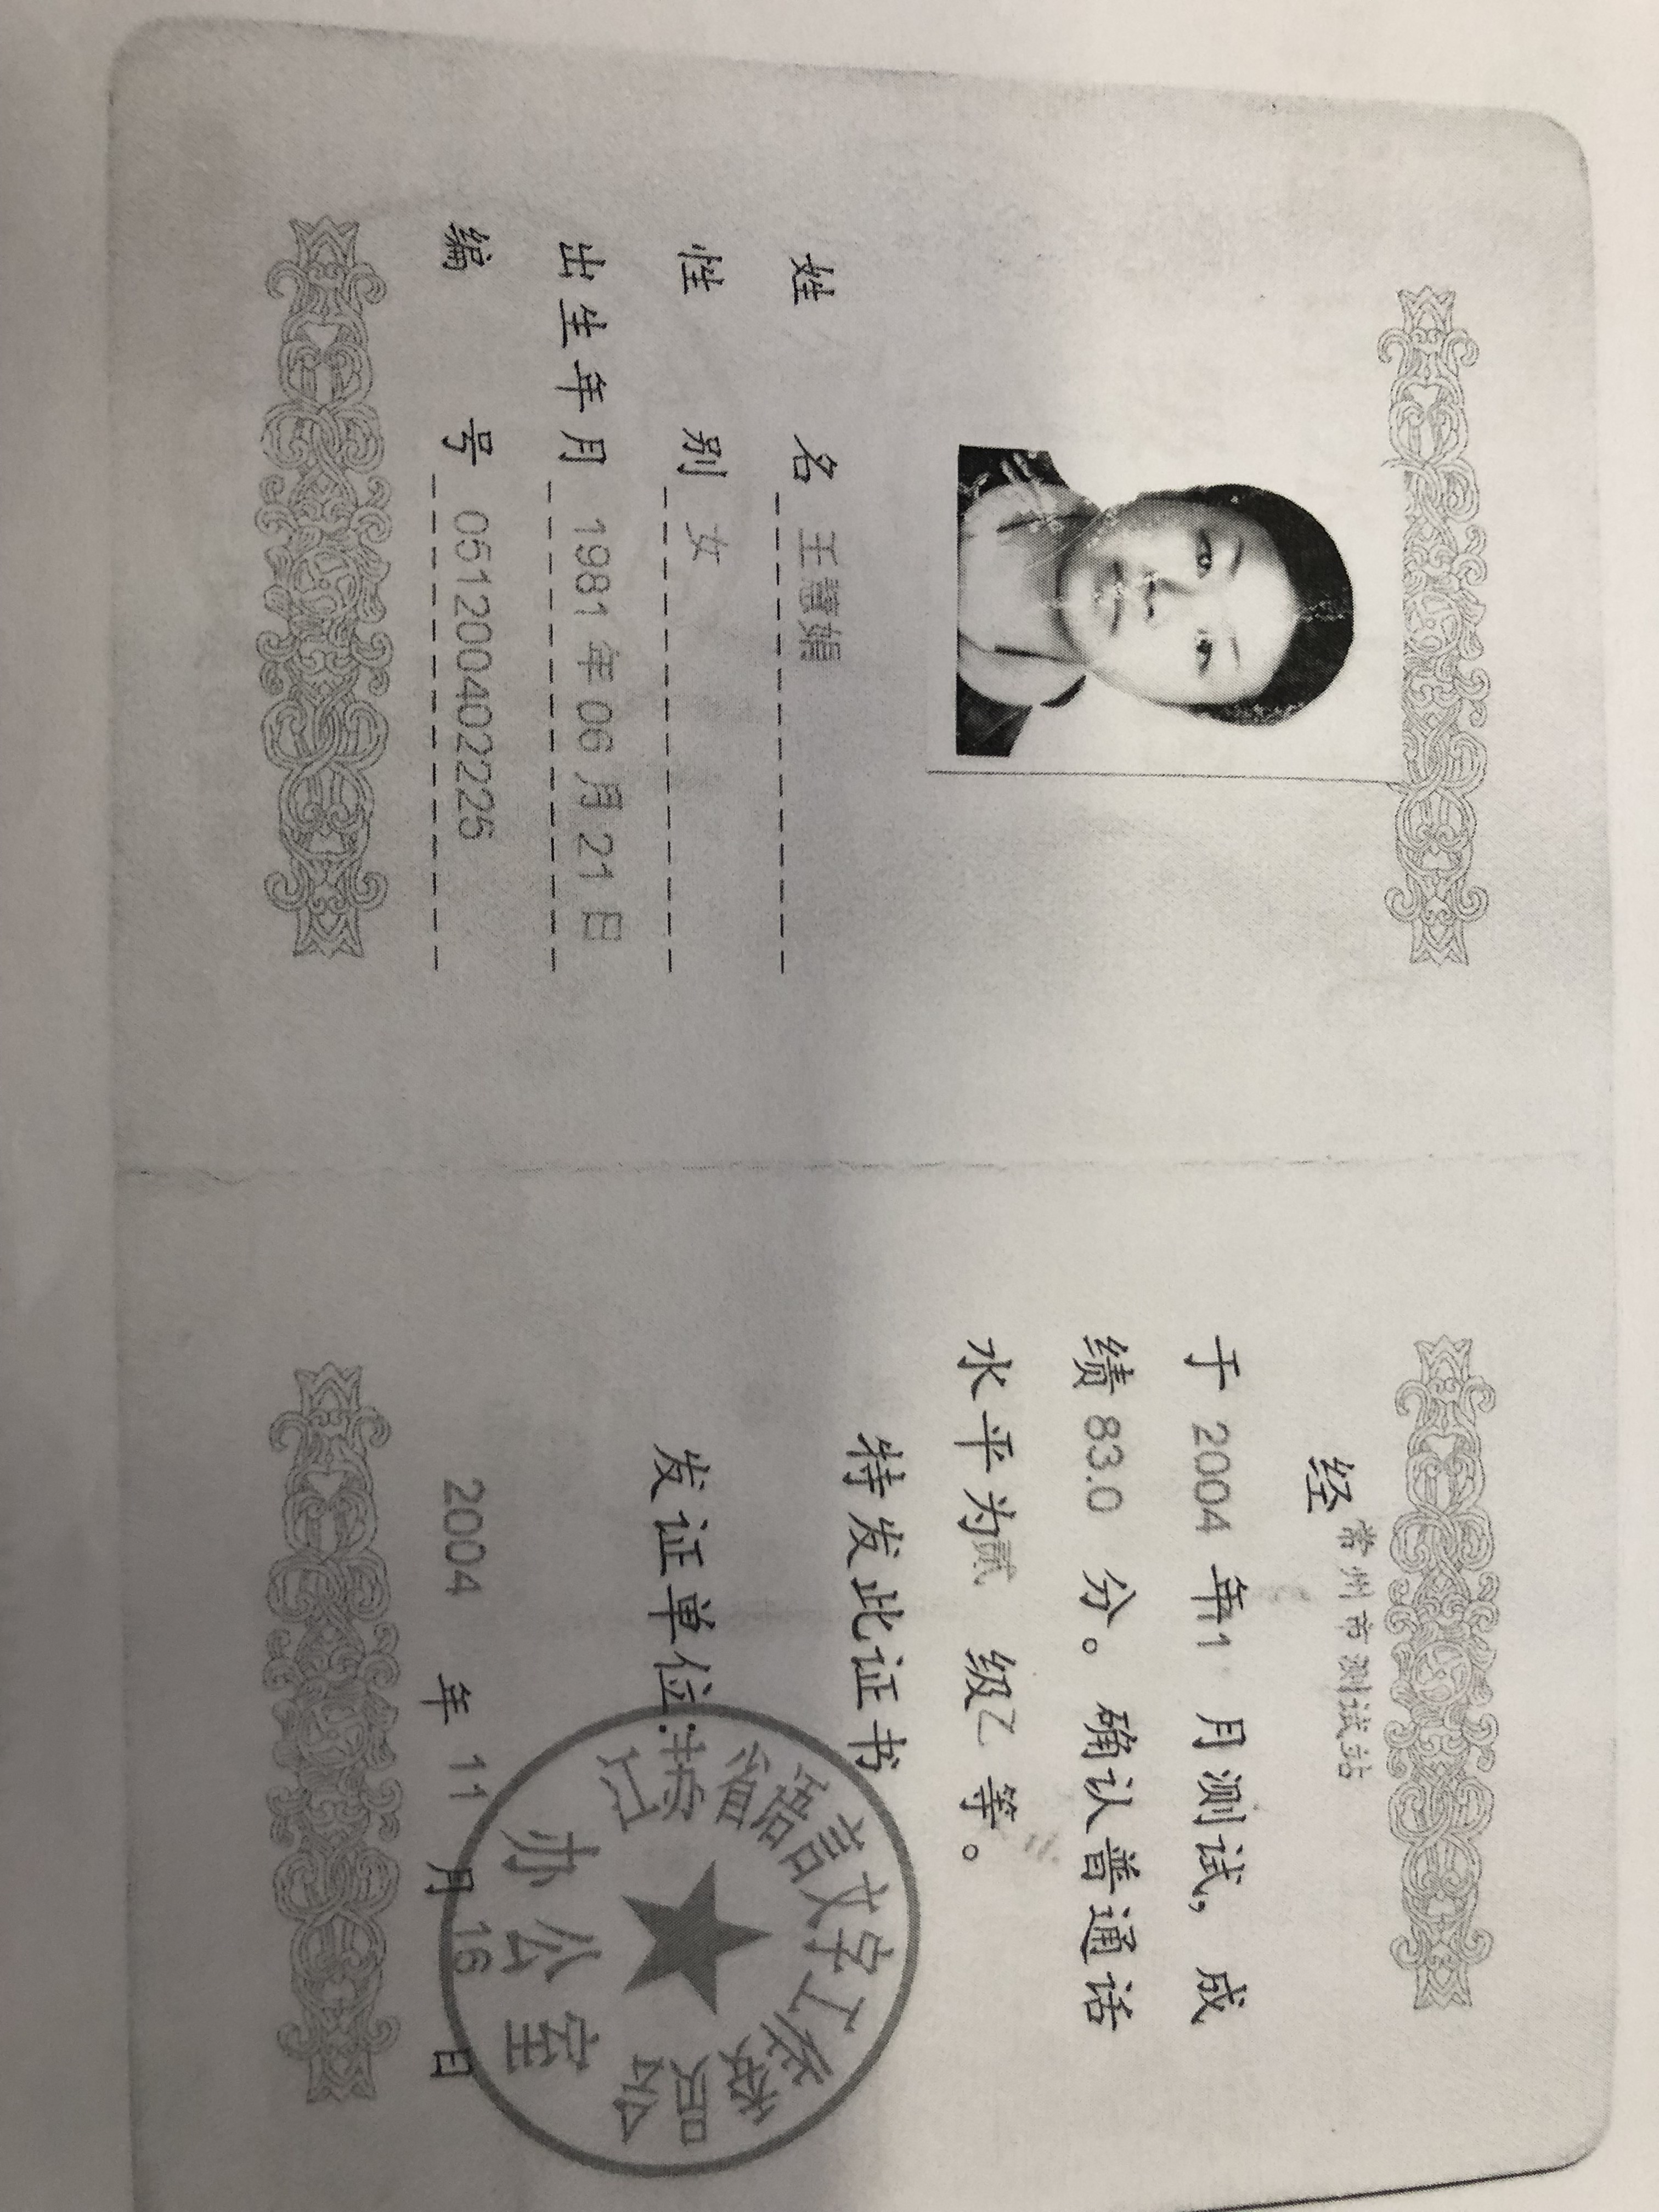 姓 名 王慧娟
性 别 女
出生年月 1981年06月21日
编 号 0512004022225
经 常州市测试站
于 2004 年11 月测试，成
绩 83.0 分。确认普通话
水平为贰 级乙 等。
特发此证书
发证单位：
江苏省语言文字工作委员会
办公室
2004 年 11 月 16 日